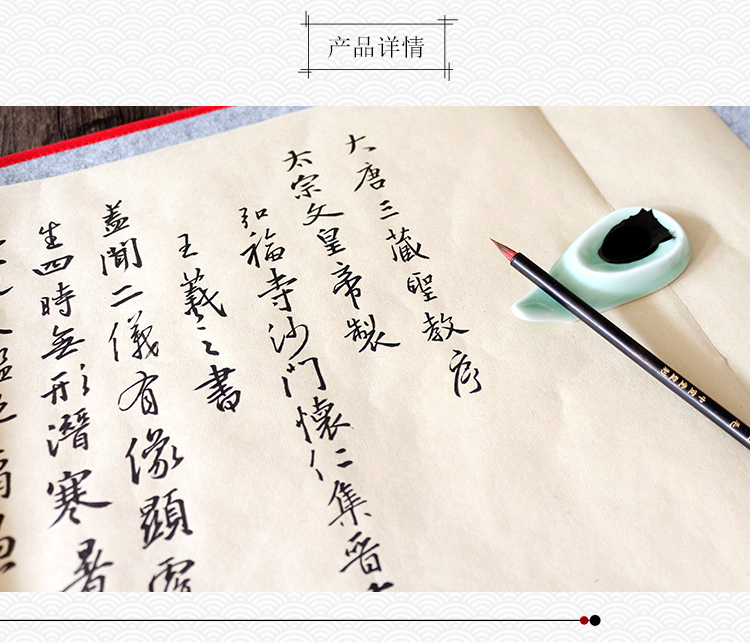 产品详情
大唐三藏聖教序
太宗文皇帝製
弘福寺沙门懷仁集晉
王羲之書
蓋聞二儀有像顯
生四時無形潛寒暑